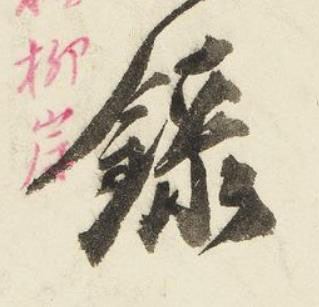 錄
柳岸